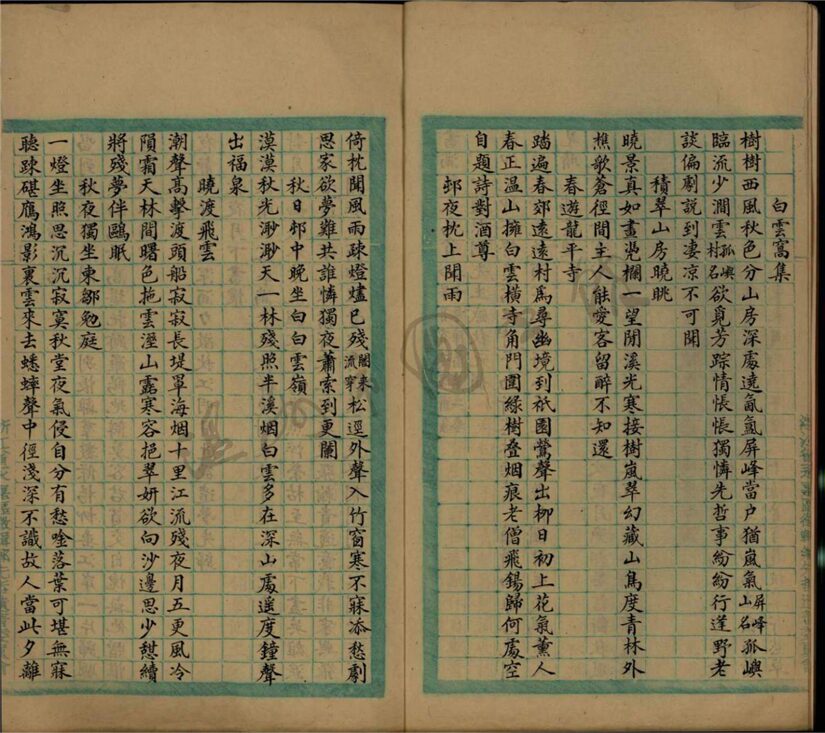 白雲窩集
樹樹西風秋色分山房深處遶氤氳屏峰當户猶嵐氣屏峰山名孤嶼
臨流少澗雲孤嶼村名欲覓芳踪情悵悵獨憐先哲事紛紛行逢野老
談偏劇說到凄凉不可聞
積翠山房曉眺
曉景真如畫凭欄一望開溪光寒接樹嵐翠幻藏山鳥度青林外
樵歌蒼徑間主人能愛客留醉不知還
春遊龍平寺
踏遍春郊遠遠村爲尋幽境到祇園鶯聲出柳日初上花氣薰人
春正温山擁白雲橫寺角門圍綠樹叠烟痕老僧飛錫歸何處空
自題詩對酒尊
邨夜枕上聞雨
倚枕聞風雨疎燈燼已殘閣來流寧松逕外聲入竹窗寒不寐添愁劇
思家欲夢難共誰憐獨夜蕭索到更闌
秋日邨中晚坐白白雲嶺
漠漠秋光渺渺天一林殘照半溪烟白雲多在深山處遥度鐘聲
出福泉
曉渡飛雲
潮聲高擊渡頭船寂寂長堤罩海烟十里江流殘夜月五更風冷
隕霜天林間曙色拖雲溼山靄寒容挹翠妍欲向沙邊思少憇續
將殘夢伴鷗眠
秋夜獨坐柬鄒勉庭
一燈坐照思沉沉寂寞秋堂夜氣侵自分有愁唫落葉可堪無寐
聽疎碪鴈鴻影裏雲來去蟋蟀聲中徑淺深不識故人當此夕離